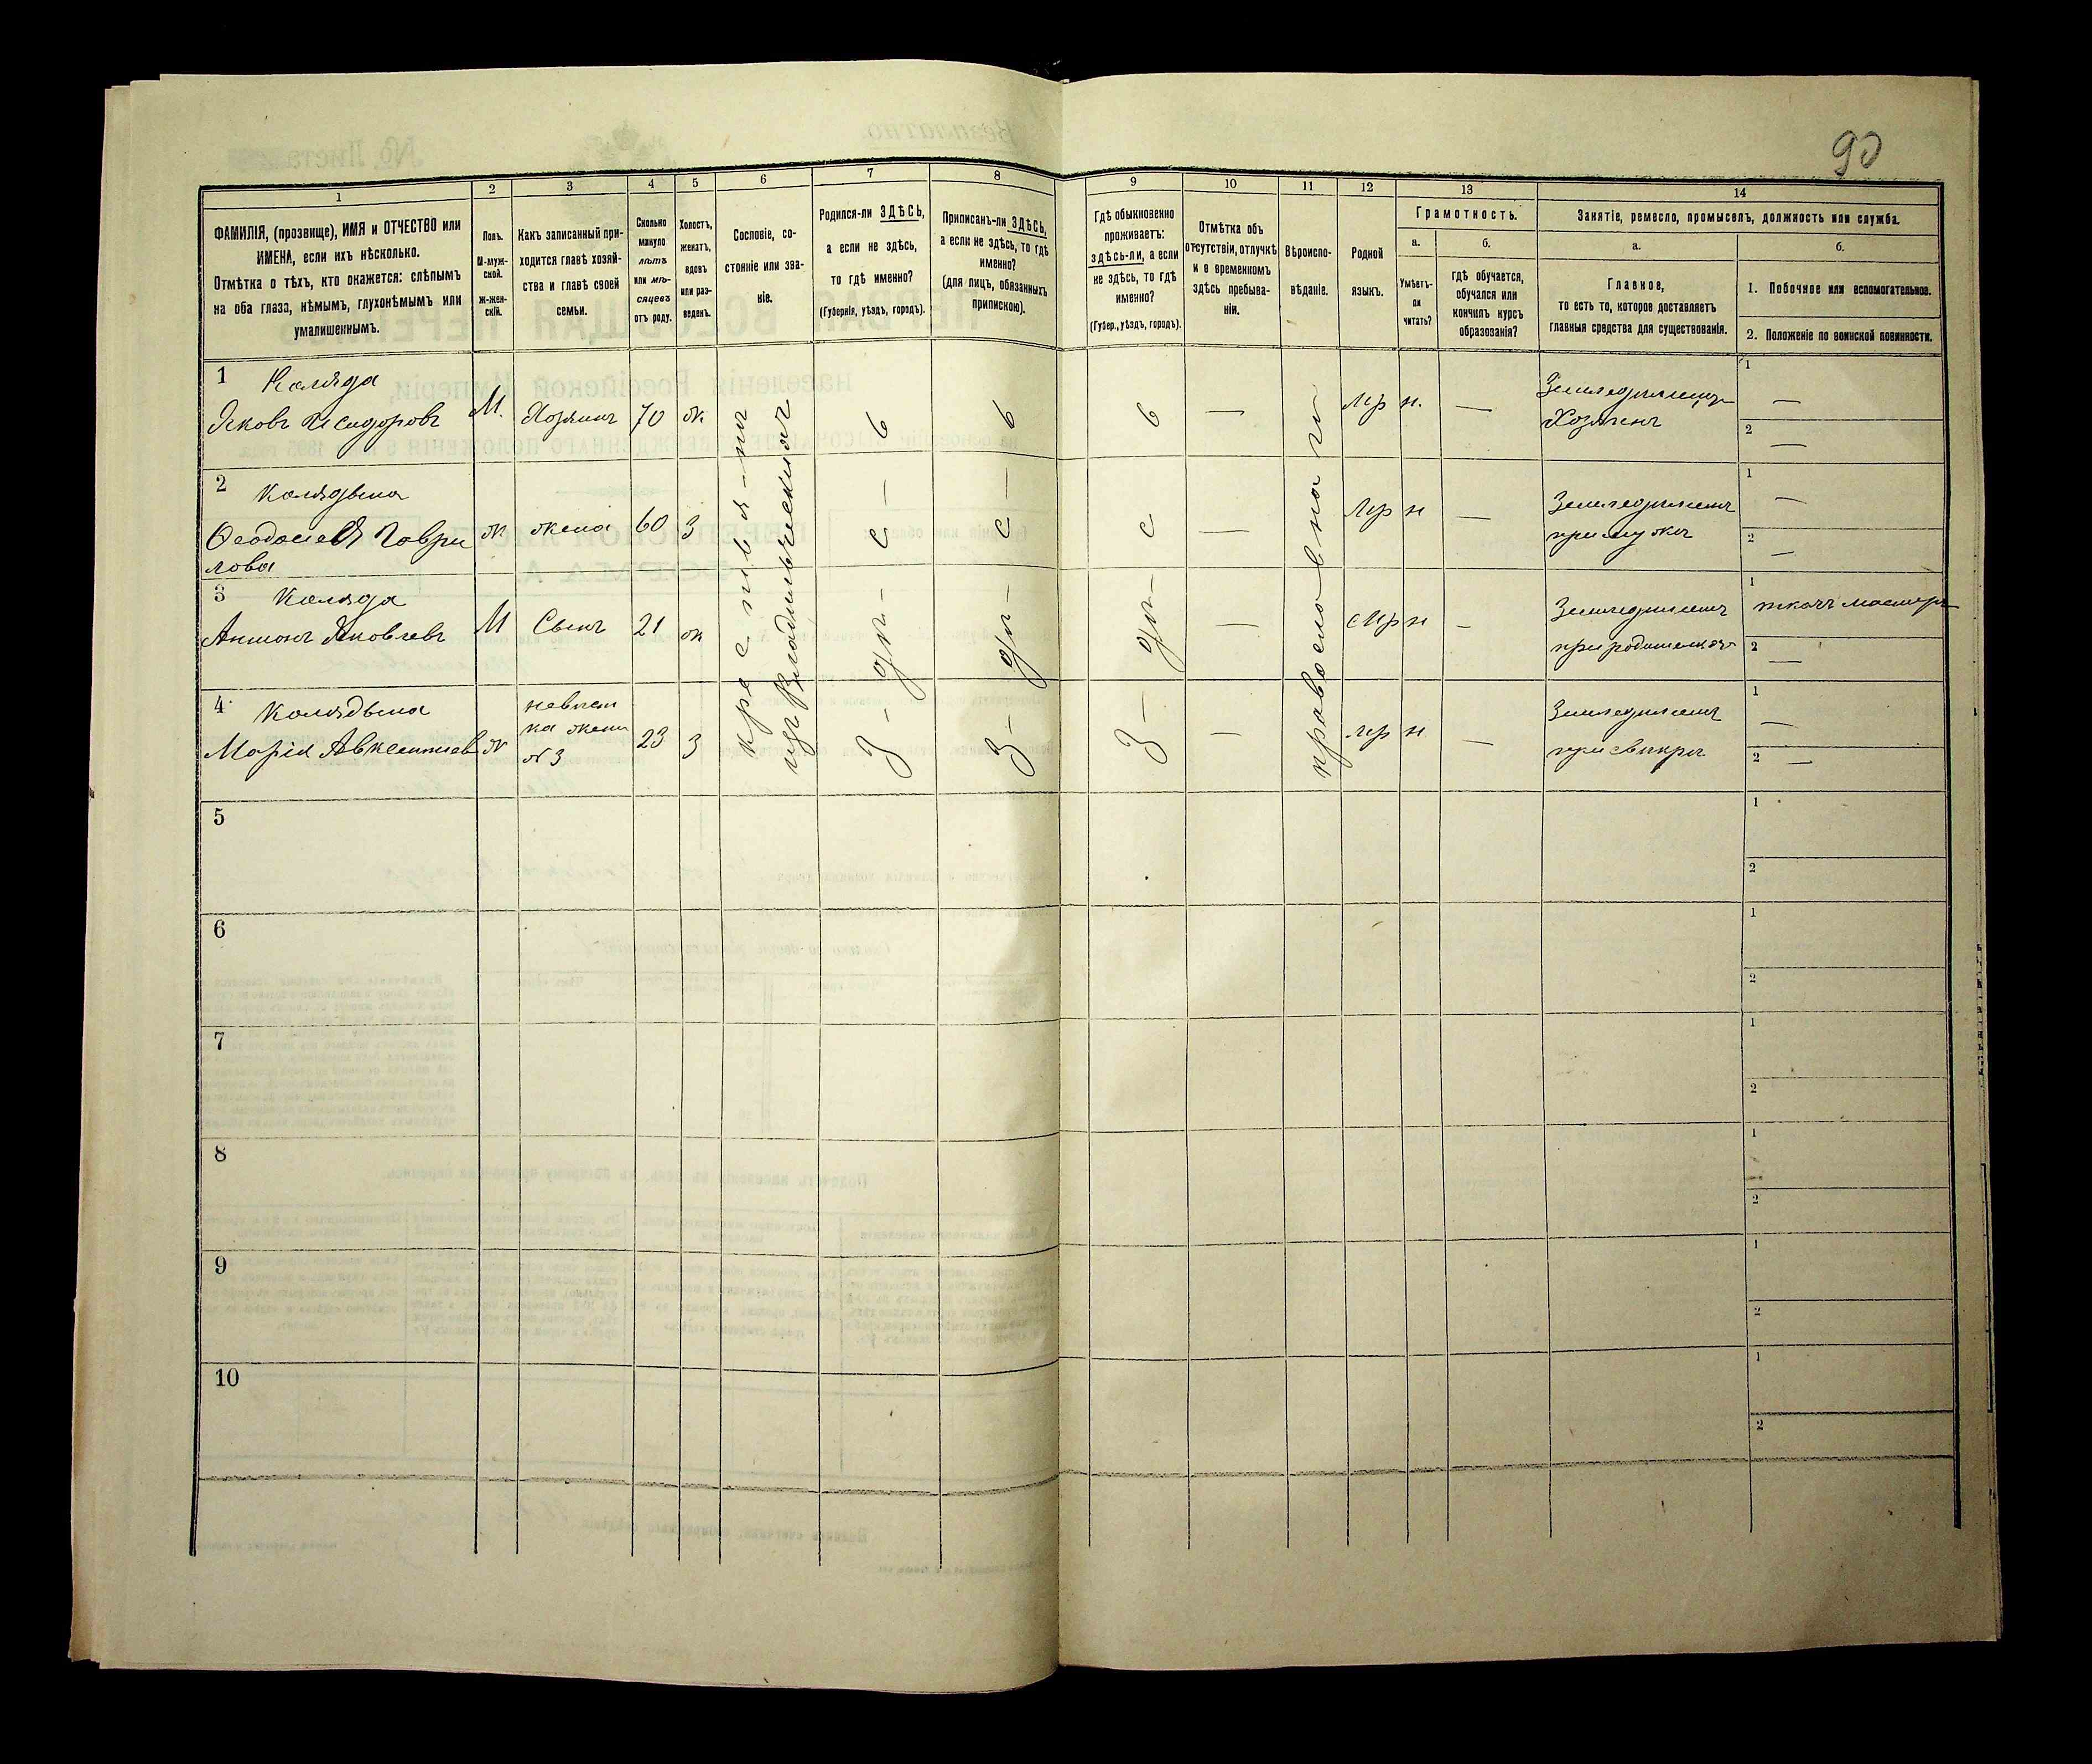 90
1
2
3
4
5
6
7
8
9
10
11
12
13
14
ФАМИЛІЯ, (прозвище), ИМЯ и ОТЧЕСТВО или
ИМЕНА, если ихъ нѣсколько.
Отмѣтка о тѣхъ, кто окажется: слѣпымъ
на оба глаза, нѣмымъ, глухонѣмымъ или
умалишеннымъ.
Полъ.
М-муж-
ской.
ж-жен-
скій.
Какъ записанный при-
ходится главѣ хозяй-
ства и главѣ своей
семьи.
Сколько
минуло
лѣтъ
или мѣ-
сяцевъ
отъ роду.
Холостъ,
женатъ,
вдовъ
или раз-
веденъ.
Сословіе, со-
стояніе или зва-
ніе.
Родился-ли ЗДѢСЬ,
а если не здѣсь,
то гдѣ именно?
(Губернія, уѣздъ, городъ).
Приписанъ-ли ЗДѢСЬ,
а если не здѣсь, то гдѣ
именно?
(для лицъ, обязанныхъ
припискою).
Гдѣ обыкновенно
проживаетъ:
здѣсь-ли, а если
не здѣсь, то гдѣ
именно?
(Губер., уѣздъ, городъ).
Отмѣтка объ
отсутствіи, отлучкѣ
и о временномъ
здѣсь пребыва-
ніи.
Вѣроиспо-
вѣданіе.
Родной
языкъ.
Грамотность.
а.
Умѣетъ-
ли
читать?
б.
гдѣ обучается,
обучался или
кончилъ курсъ
образованія?
Занятіе, ремесло, промыселъ, должность или служба.
а.
Главное,
то есть то, которое доставляетъ
главныя средства для существованія.
б.
1. Побочное или вспомогательное.
2. Положеніе по воинской повинности.
1 Коляда
Яковъ Исидоровъ
М. Хозяинъ 70 ж
— Мр н. —
Земледѣлецъ
Хозяинъ
1 —
2 —
2 Колядына
Феодосія Гаври
лова
ж жена 60 З
— Мр н —
при мужѣ
1 —
2 —
3 Коляда
Антонъ Яковлевъ
М Сынъ 21 ж
— Мр н —
при родителяхъ
1 ткачъ мастеръ
2 —
4 Колядына
Марія Авксентіева
ж невѣст
ка жена
№ 3
23 З
— Мр н —
при свекрѣ
1 —
2 —
крестьянъ
изъ Владѣльческихъ
З-дѣ-с-ь
З-дѣ-с-ь
З-дѣ-с ь
православнаго
5
1
2
6
1
2
7
1
2
8
1
2
9
1
2
10
1
2